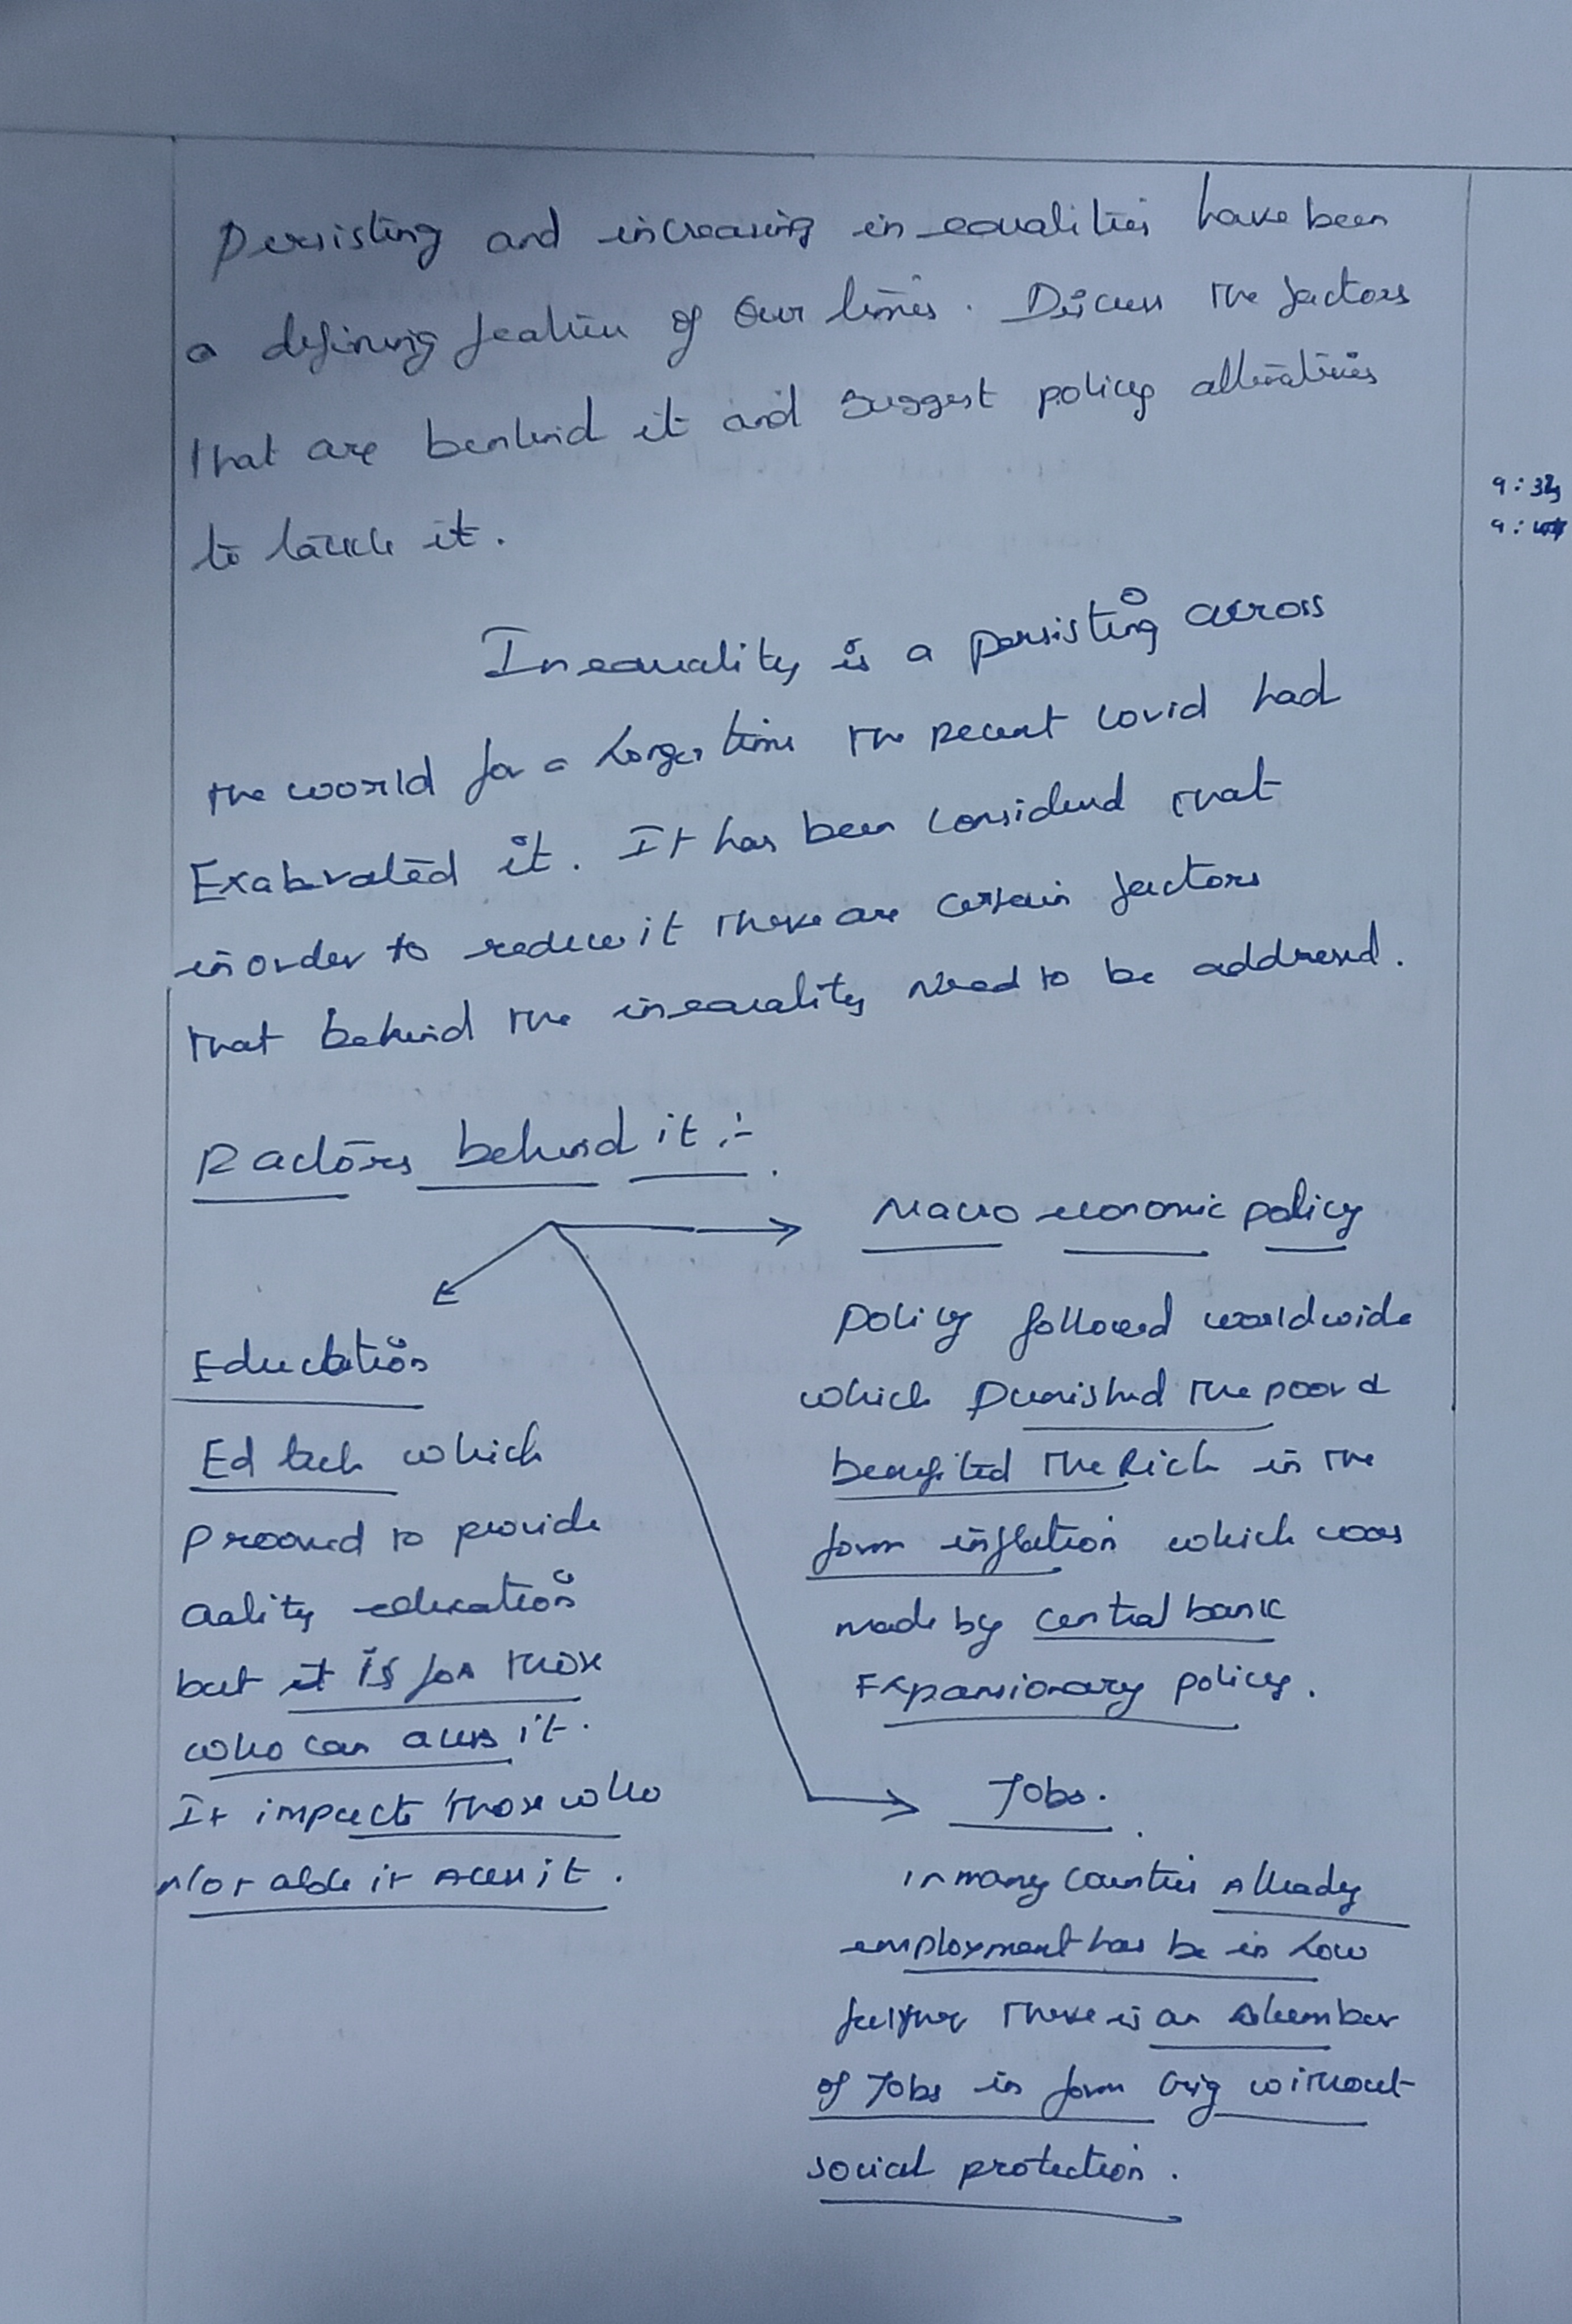 Persisting and increasing inequalities have been
a defining feature of our times. Discuss the factors
that are benhind it and suggest policy alternatives
to tackle it.
9:32
9:
Inequality is a persisting across
the world for a longer time the recent covid had
Exaberated it. It has been considered that
inorder to reduce it there are certain factors
that behind the inequality need to be addressed.
Factors behind it :-
Macro economic policy
Education
Policy followed worldwide
which Punished the poor &
Ed tech which
benefited the Rich in the
prooved to provide
form inflation which was
Qality education
made by central bank
but it is for those
Expansionary policy.
who can acess it.
Jobs.
It impacts those who
Not able it Acess it.
in many countries Already
employment has be in Low
further there is an Number
of Jobs in form Gig without
social protection.